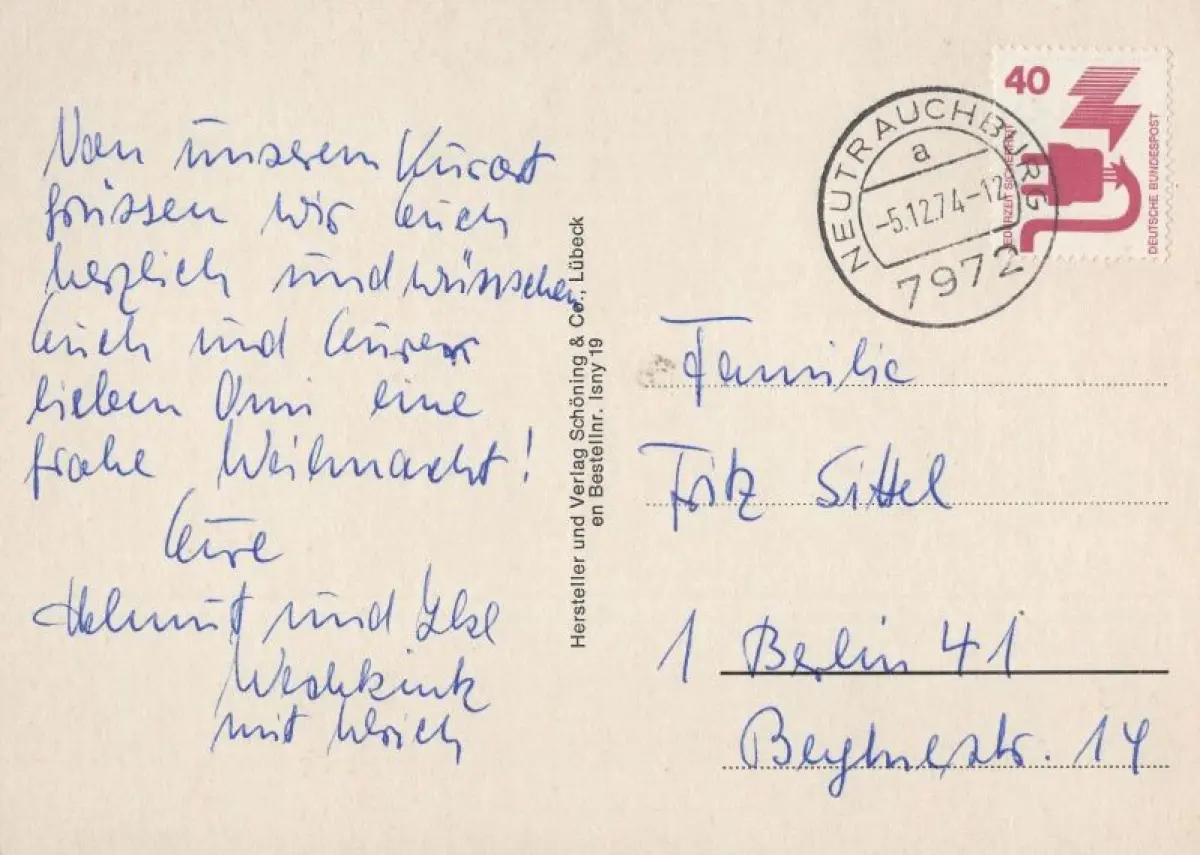 Von unserem Kurort
grüssen wir Euch
herzlich und wünschen
Euch und Eurer
lieben Omi eine
frohe Weihnacht!
Eure
Helmut und Ilse
mit Ulrich
Hersteller und Verlag Schöning & Co., Lübeck
en Bestellnr. Isny 19
NEUTRAUCHBURG
a
-5.12.74-12
7972
40
JEDERZEIT SICHERHEIT
DEUTSCHE BUNDESPOST
Familie
Fritz Sittel
1 Berlin 41
14